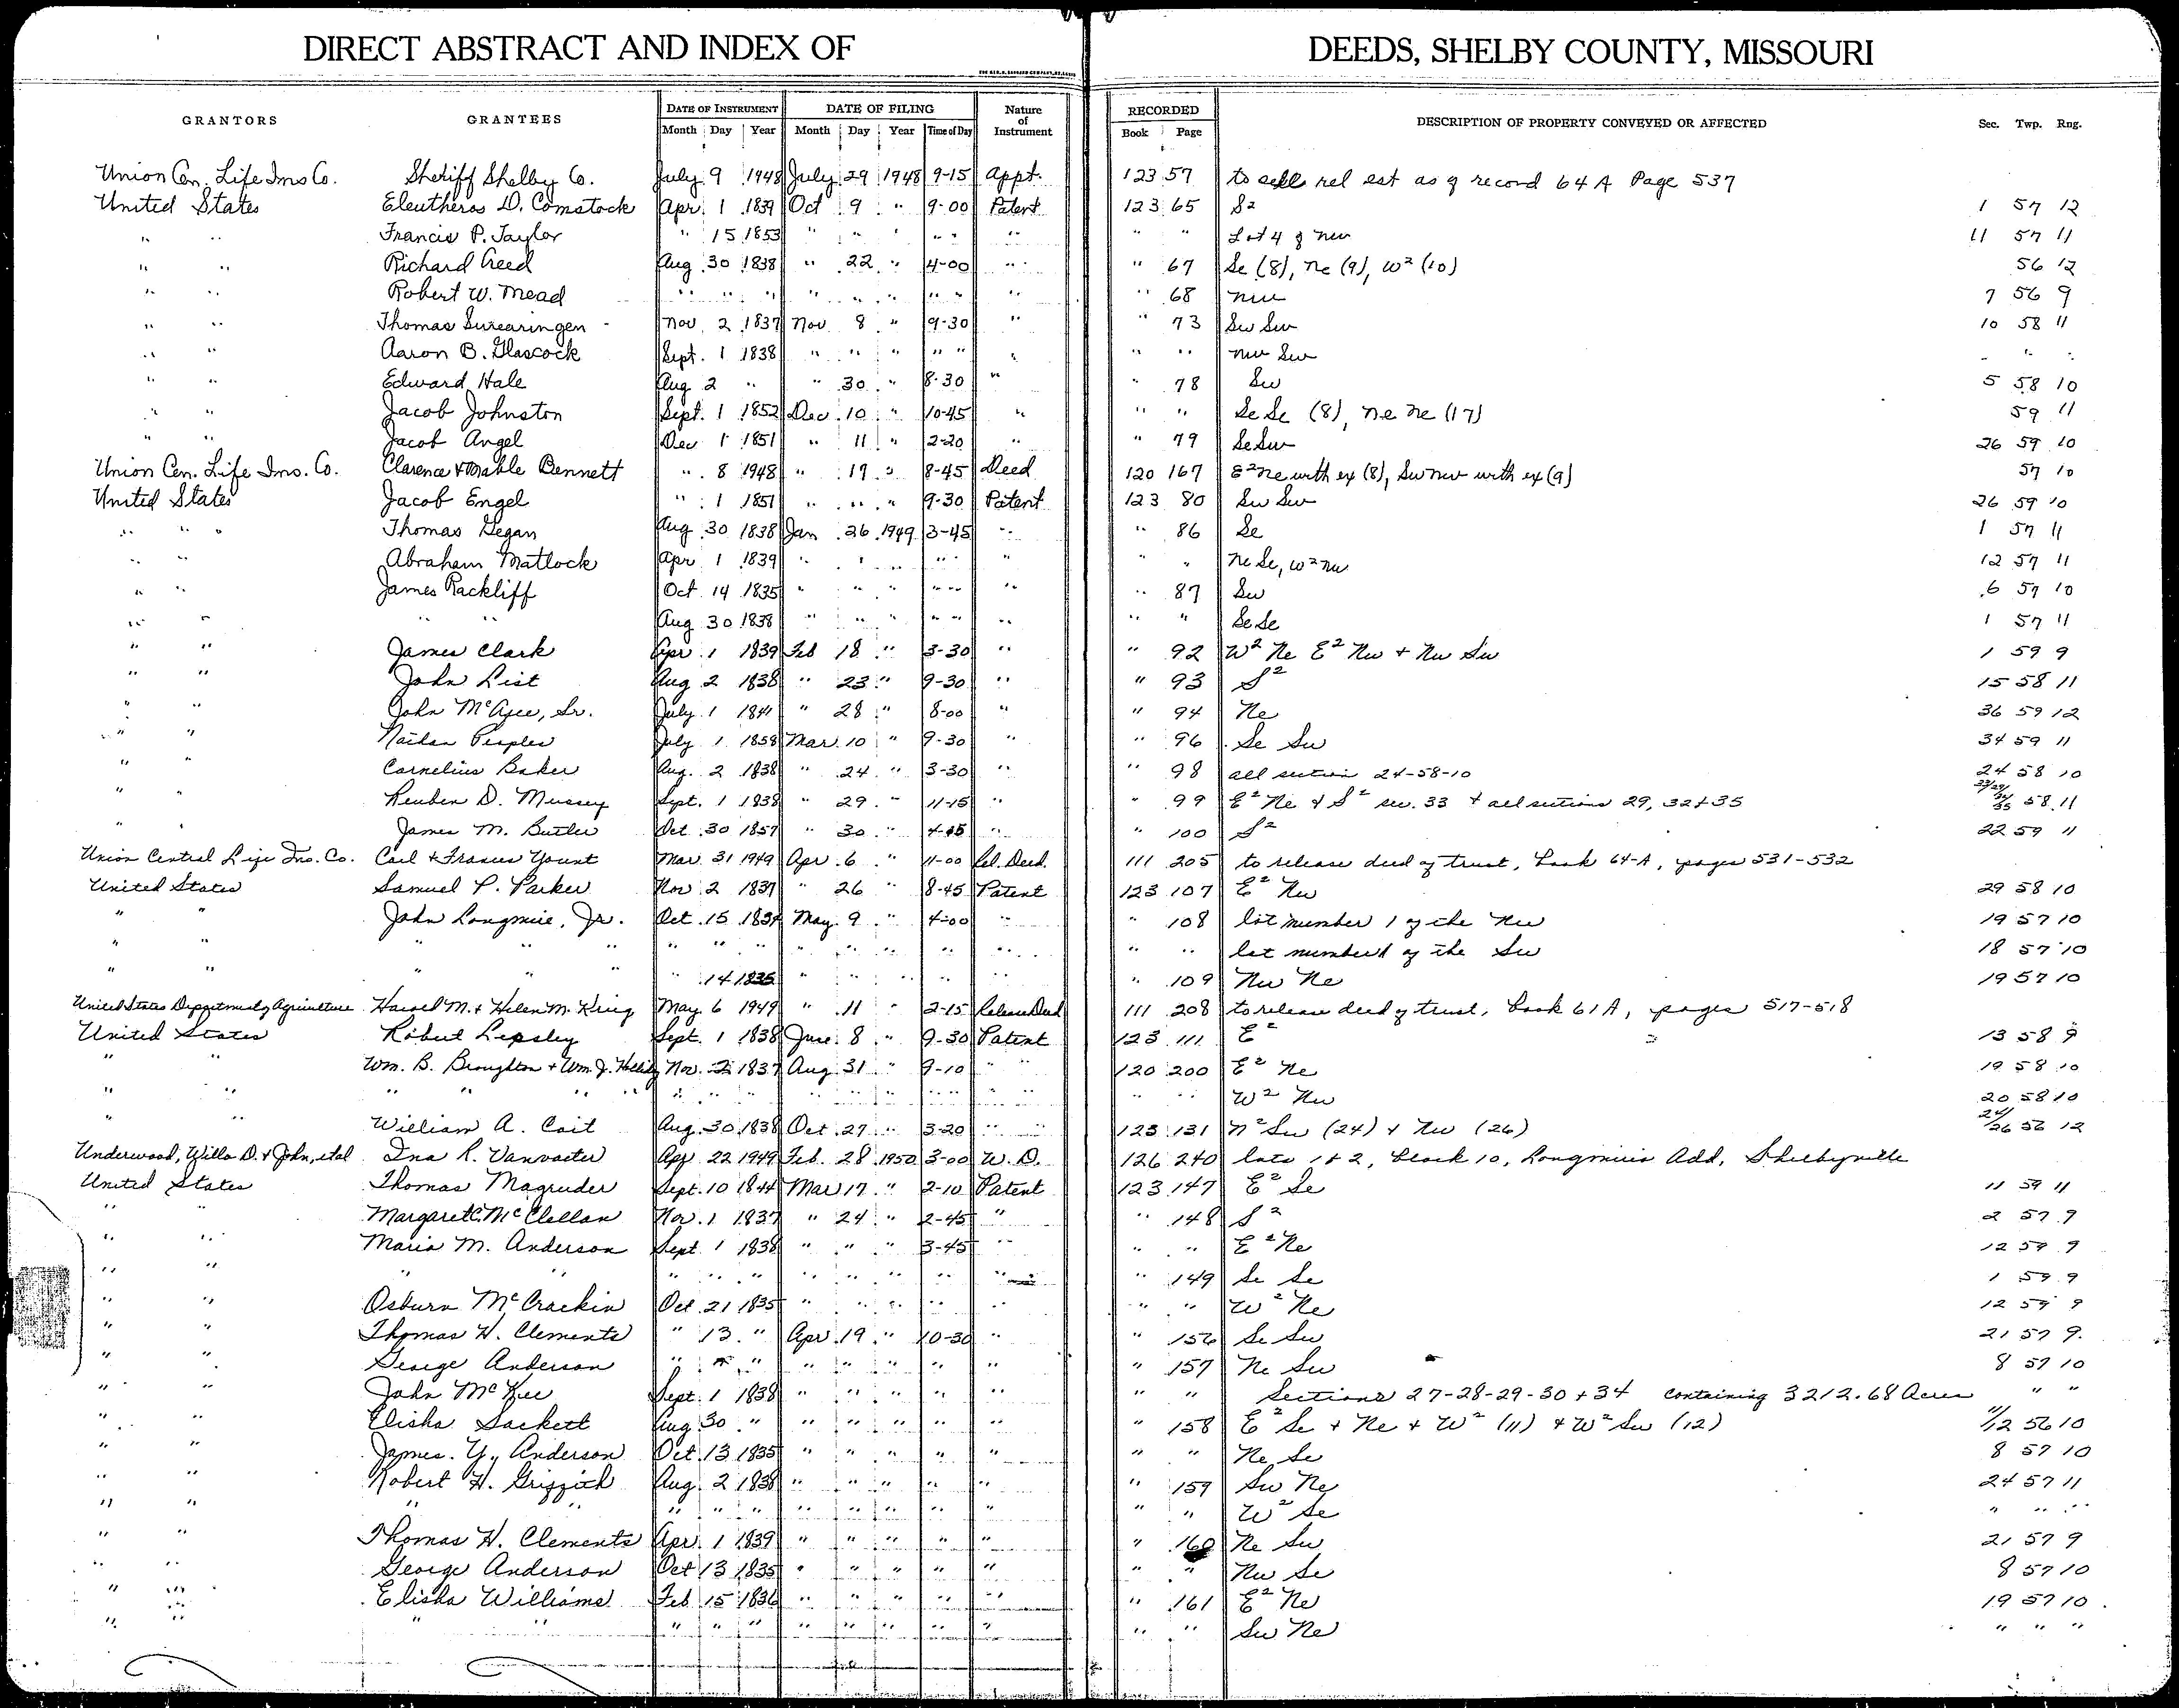 DIRECT ABSTRACT AND INDEX OF DEEDS, SHELBY COUNTY, MISSOURI
GRANTORS GRANTEES DATE OF INSTRUMENT DATE OF FILING Nature of Instrument RECORDED DESCRIPTION OF PROPERTY CONVEYED OR AFFECTED Sec. Twp. Rng.
Month Day Year Month Day Year Time of Day Book Page
Union Cen. Life Ins Co. Sheriff Shelby Co. July 9 1948 July 29 1948 9-15 Appt. 123 57 to sell rel est as of record 64 A Page 537
United States Eleutheros D. Comstock Apr. 1 1839 Oct 9 " 9-00 Patent 123 65 S2 1 57 12
" " Francis P. Taylor " 15 1853 " " " " " " " " Lot 4 of nw 11 57 11
" " Richard Creed Aug 30 1838 " 22 " 4-00 " " 67 Se (8), ne (9), w2 (10) 56 12
" " Robert W. Mead " " " " " " " " " " 68 nw 7 56 9
" " Thomas Swearingen Nov 2 1837 Nov 8 " 9-30 " " 73 Sw Sw 10 58 11
" " Aaron B. Glascock Sept. 1 1838 " " " " " " " " nw Sw " " "
" " Edward Hale Aug 2 " " 30 " 8-30 " " 78 Sw 5 58 10
" " Jacob Johnston Sept. 1 1852 Dec 10 " 10-45 " " " Se Se (8), ne ne (17) 59 11
" " Jacob Angel Dec 1 1851 " 11 " 2-20 " " 79 Se Sw 26 59 10
Union Cen. Life Ins. Co. Clarence & Mable Bennett " 8 1948 " 17 " 8-45 Deed 120 167 E2 ne with ex (8), Sw nw with ex (9) 57 10
United States Jacob Engel " 1 1851 " " " 9-30 Patent 123 80 Sw Sw 26 59 10
" " Thomas Gegan Aug 30 1838 Jan 26 1949 3-45 " " 86 Se 1 57 11
" " Abraham Matlock Apr 1 1839 " " " " " " " " ne Se, w2 nw 12 57 11
" " James Rackliff Oct. 14 1835 " " " " " " " 87 Sw 6 57 10
" " " " Aug 30 1838 " " " " " " " " Se Se 1 57 11
" " James Clark Apr 1 1839 Feb 18 " 3-30 " " 92 W2 Ne E2 Nw + Nw Sw 1 59 9
" " John List Aug 2 1838 " 23 " 9-30 " " 93 S2 15 58 11
" " John McAfee, Sr. July 1 1841 " 28 " 8-00 " " 94 Ne 36 59 12
" " Nathan Peoples July 1 1858 Mar. 10 " 9-30 " " 96 Se Sw 34 59 11
" " Cornelius Baker Aug. 2 1838 " 24 " 3-30 " " 98 all section 24-58-10 24 58 10
" " Reuben D. Mussey Sept. 1 1838 " 29 " 11-15 " " 99 E2 Ne & S2 sec. 33 + all sections 29, 32 + 35 58 11
" " James M. Butler Oct. 30 1857 " 30 " " " 100 S2 22 59 11
Union Central Life Ins. Co. Carl & Frances Yount Mar. 31 1949 Apr. 6 " 11-00 Rel. Deed. 111 205 to release deed of trust, book 64-A, pages 531-532
United States Samuel P. Parker Nov 2 1837 " 26 " 8-45 Patent 123 107 E2 Nw 29 58 10
" " John Longmire, Jr. Oct. 15 May 9 " 4-00 " " 108 lot number 1 of the Nw 19 57 10
" " " " " " " " " " " " " " " " lot number 1 of the Sw 18 57 10
" " " " " " 14 1835 " " " " " " 109 Nw Ne 19 57 10
United States Department of Agriculture Harold M. & Helen M. King May 6 1949 " 11 " 2-15 Release Deed 111 208 to release deed of trust, book 61A, pages 517-518
United States Robert Lepsley Sept. 1 1838 June 8 " 9-30 Patent 123 111 E2 13 58 9
" " Wm. B. Broughton + Wm. J. Holliday Nov. 2 1837 Aug. 31 " 9-10 " " 120 200 E2 Ne 19 58 10
" " " " " " " " " " " " " " " " " W2 Nw 20 58 10
" " William A. Cait Aug. 30 1838 Oct. 27 " 3-20 " " 123 131 N2 Sw (24) + Nw (26) 24/26 56 12
Underwood, Willa D. & John, etal Ina R. Vanvacter Apr 22 1949 Feb. 28 1950 3-00 W. D. 126 240 lots 1 & 2, block 10, Longmires Add, Shelbyville
United States Thomas Magruder Sept. 10 1844 Mar 17 " 2-10 Patent 123 147 E2 Se 11 59 11
" " Margaret C. McClellan Nov. 1 1837 " 24 " 2-45 " " 148 S2 2 57 9
" " Maria M. Anderson Sept. 1 1838 " " " 3-45 " " " E2 Ne 12 59 9
" " " " " " " " " " " " " 149 Se Se 1 59 9
" " Osburn McCrackin Oct. 21 1835 " " " " " " " W2 Ne 12 59 9
" " Thomas H. Clements " 13 " Apr. 19 " 10-30 " " 156 Se Sw 21 57 9
" " George Anderson " " " " " " " " " 157 Ne Sw 8 57 10
" " John McKee Sept. 1 1838 " " " " " " " Sections 27-28-29-30 + 34 containing 3212.68 Acres " "
" " Elisha Sackett Aug. 30 " " " " " " " 158 E2 Se + Ne + W2 (11) & W2 Sw (12) 11/12 56 10
" " James Y. Anderson Oct. 13 1835 " " " " " " " Ne Se 8 57 10
" " Robert H. Griffith Aug. 2 1838 " " " " " " 159 Sw Ne 24 57 11
" " " " " " " " " " " " " " W2 Se " " "
" " Thomas H. Clements Apr. 1 1839 " " " " " " 160 Ne Sw 21 57 9
" " George Anderson Oct 13 1835 " " " " " " " Nw Se 8 57 10
" " Elisha Williams Feb 15 1836 " " " " " " 161 E2 Ne 19 57 10
" " " " " " " " " " " " " " Sw Ne " " "